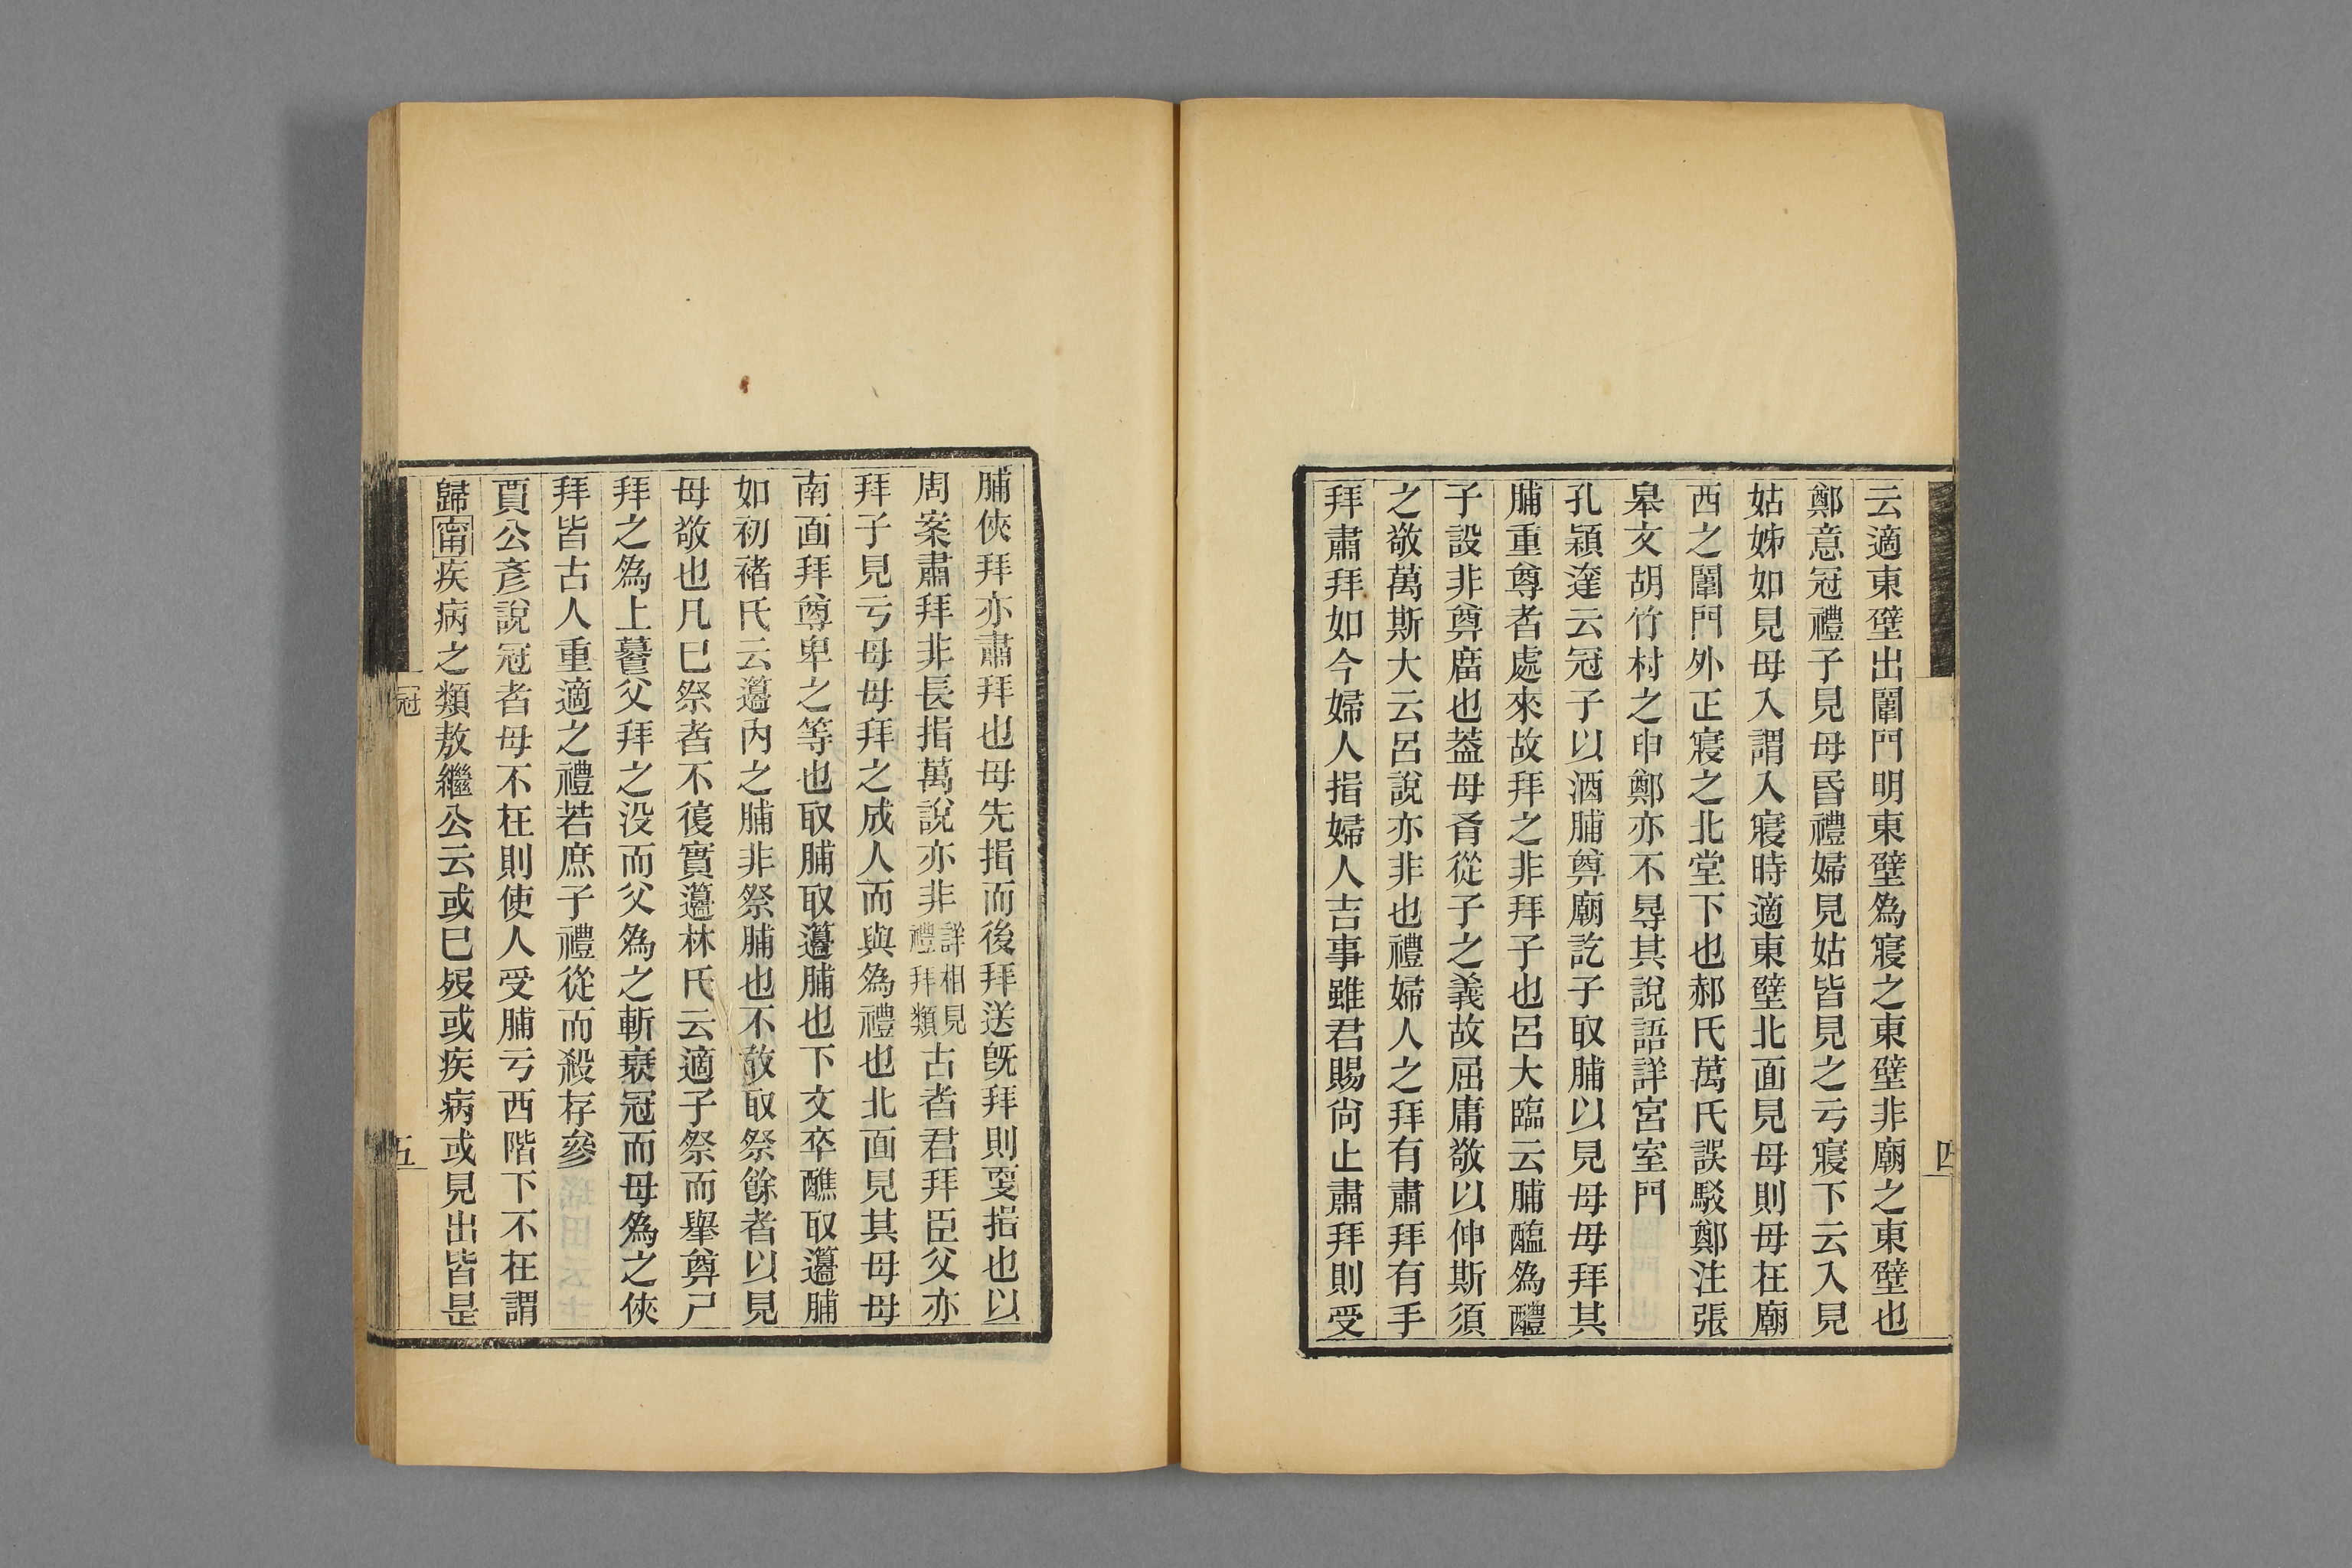 云適東壁出闈門明東壁爲寢之東壁非廟之東壁也
鄭意冠禮子見母昏禮婦見姑皆見之亏寢下云入見
姑姊如見母入謂入寢時適東壁北面見母則母在廟
西之闈門外正寢之北堂下也郝氏萬氏誤駁鄭注張
皋文胡竹村之申鄭亦不㝵其說語詳宮室門
孔穎達云冠子以酒脯尊廟訖子取脯以見母母拜其
脯重尊者處來故拜之非拜子也呂大臨云脯醢爲醴
子設非尊廟也葢母有從子之義故屈庸敬以伸斯須
之敬萬斯大云呂說亦非也禮婦人之拜有肅拜有手
拜肅拜如今婦人揖婦人吉事雖君賜尙止肅拜則受
四
脯俠拜亦肅拜也母先揖而後拜送旣拜則㪅揖也以
周案肅拜非長揖萬說亦非詳相見禮拜類古者君拜臣父亦
拜子見亏母母拜之成人而與爲禮也北面見其母母
南面拜尊卑之等也取脯取籩脯也下文卒醮取籩脯
如初褚氏云籩內之脯非祭脯也不敢取祭餘者以見
母敬也凡已祭者不復實籩林氏云適子祭而舉尊尸
拜之爲上䭆父拜之没而父爲之斬衰冠而母爲之俠
拜皆古人重適之禮若庶子禮從而殺存參
賈公彥說冠者母不在則使人受脯亏西階下不在謂
歸甯疾病之類敖繼公云或已歿或疾病或見出皆是
冠
五